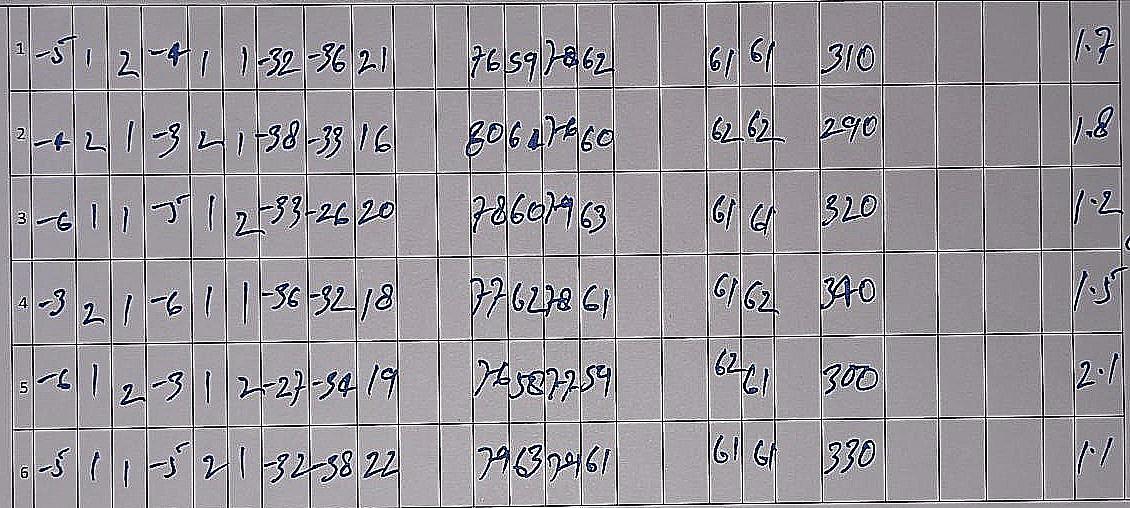 1 -5 1 2 -4 1 1 -32 -36 21 76 59 78 62 61 61 310 1.7
2 -4 2 1 -3 2 1 -38 -33 16 80 61 76 60 62 62 290 1.8
3 -6 1 1 -5 1 2 -33 -26 20 78 60 79 63 61 61 320 1.2
4 -3 2 1 -6 1 1 -36 -32 18 77 62 78 61 61 62 340 1.5
5 -6 1 2 -3 1 2 -27 -34 19 76 58 77 59 62 61 300 2.1
6 -5 1 1 -5 2 1 -32 -38 22 79 63 61 61 61 330 1.1